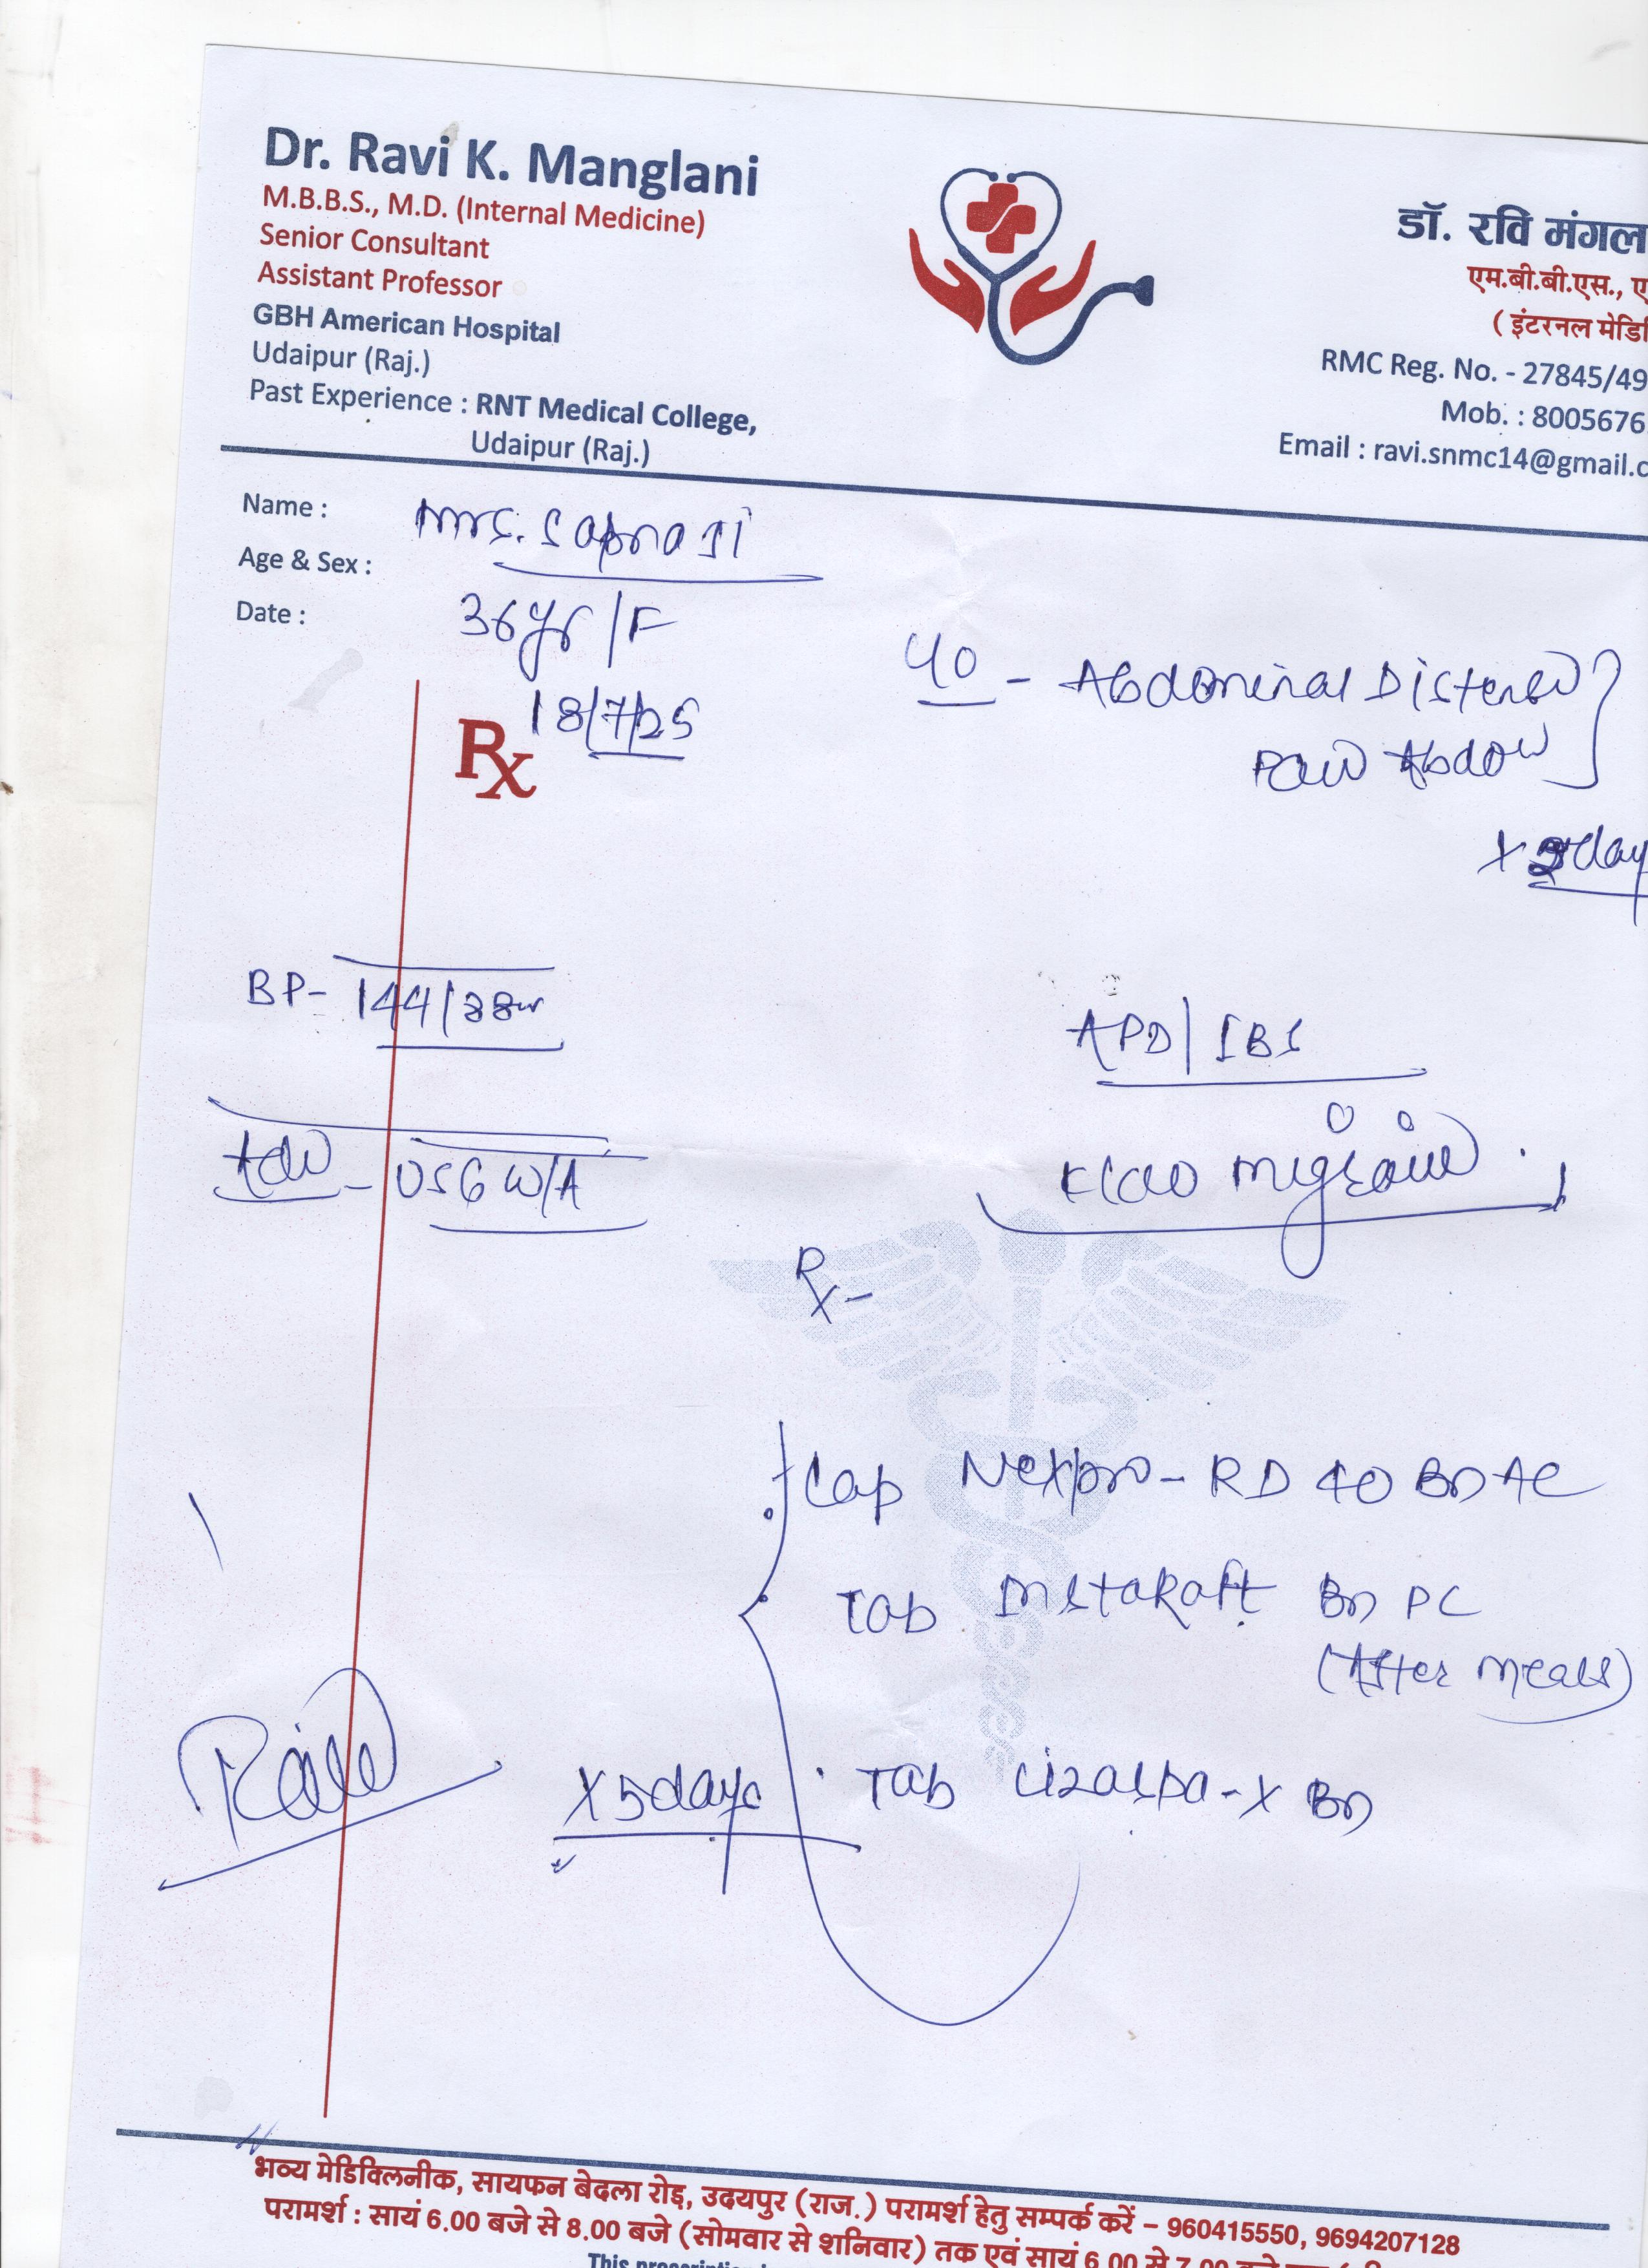 Dr. Ravi K. Manglani
M.B.B.S., M.D. (Internal Medicine)
Senior Consultant
Assistant Professor
GBH American Hospital
Udaipur (Raj.)
Past Experience : RNT Medical College,
Udaipur (Raj.)
डॉ. रवि मंगल
एम.बी.बी.एस., ए
( इंटरनल मेडि
RMC Reg. No. - 27845/49
Mob. : 8005676
Email : ravi.snmc14@gmail.c
Name : Mrs. Sapna Ji
Age & Sex : 36yr/F
Date : 18/7/25
Rx
C/O - Abdominal Distension
Pain Abdomen
X day
BP- 144/88
APD/IBS
Adv - USG W/A
K/C/O Migraine
Rx-
Cap Nexpro-RD 40 BD AC
Tab Instaraft BD PC
(After meals)
X 5days
Tab -X BD
भव्य मेडिक्लिनीक, सायफन बेदला रोड़, उदयपुर (राज.) परामर्श हेतु सम्पर्क करें – 960415550, 9694207128
परामर्श : सायं 6.00 बजे से 8.00 बजे (सोमवार से शनिवार) तक एवं सायं 6.00 से 7.00 बजे
This prescription